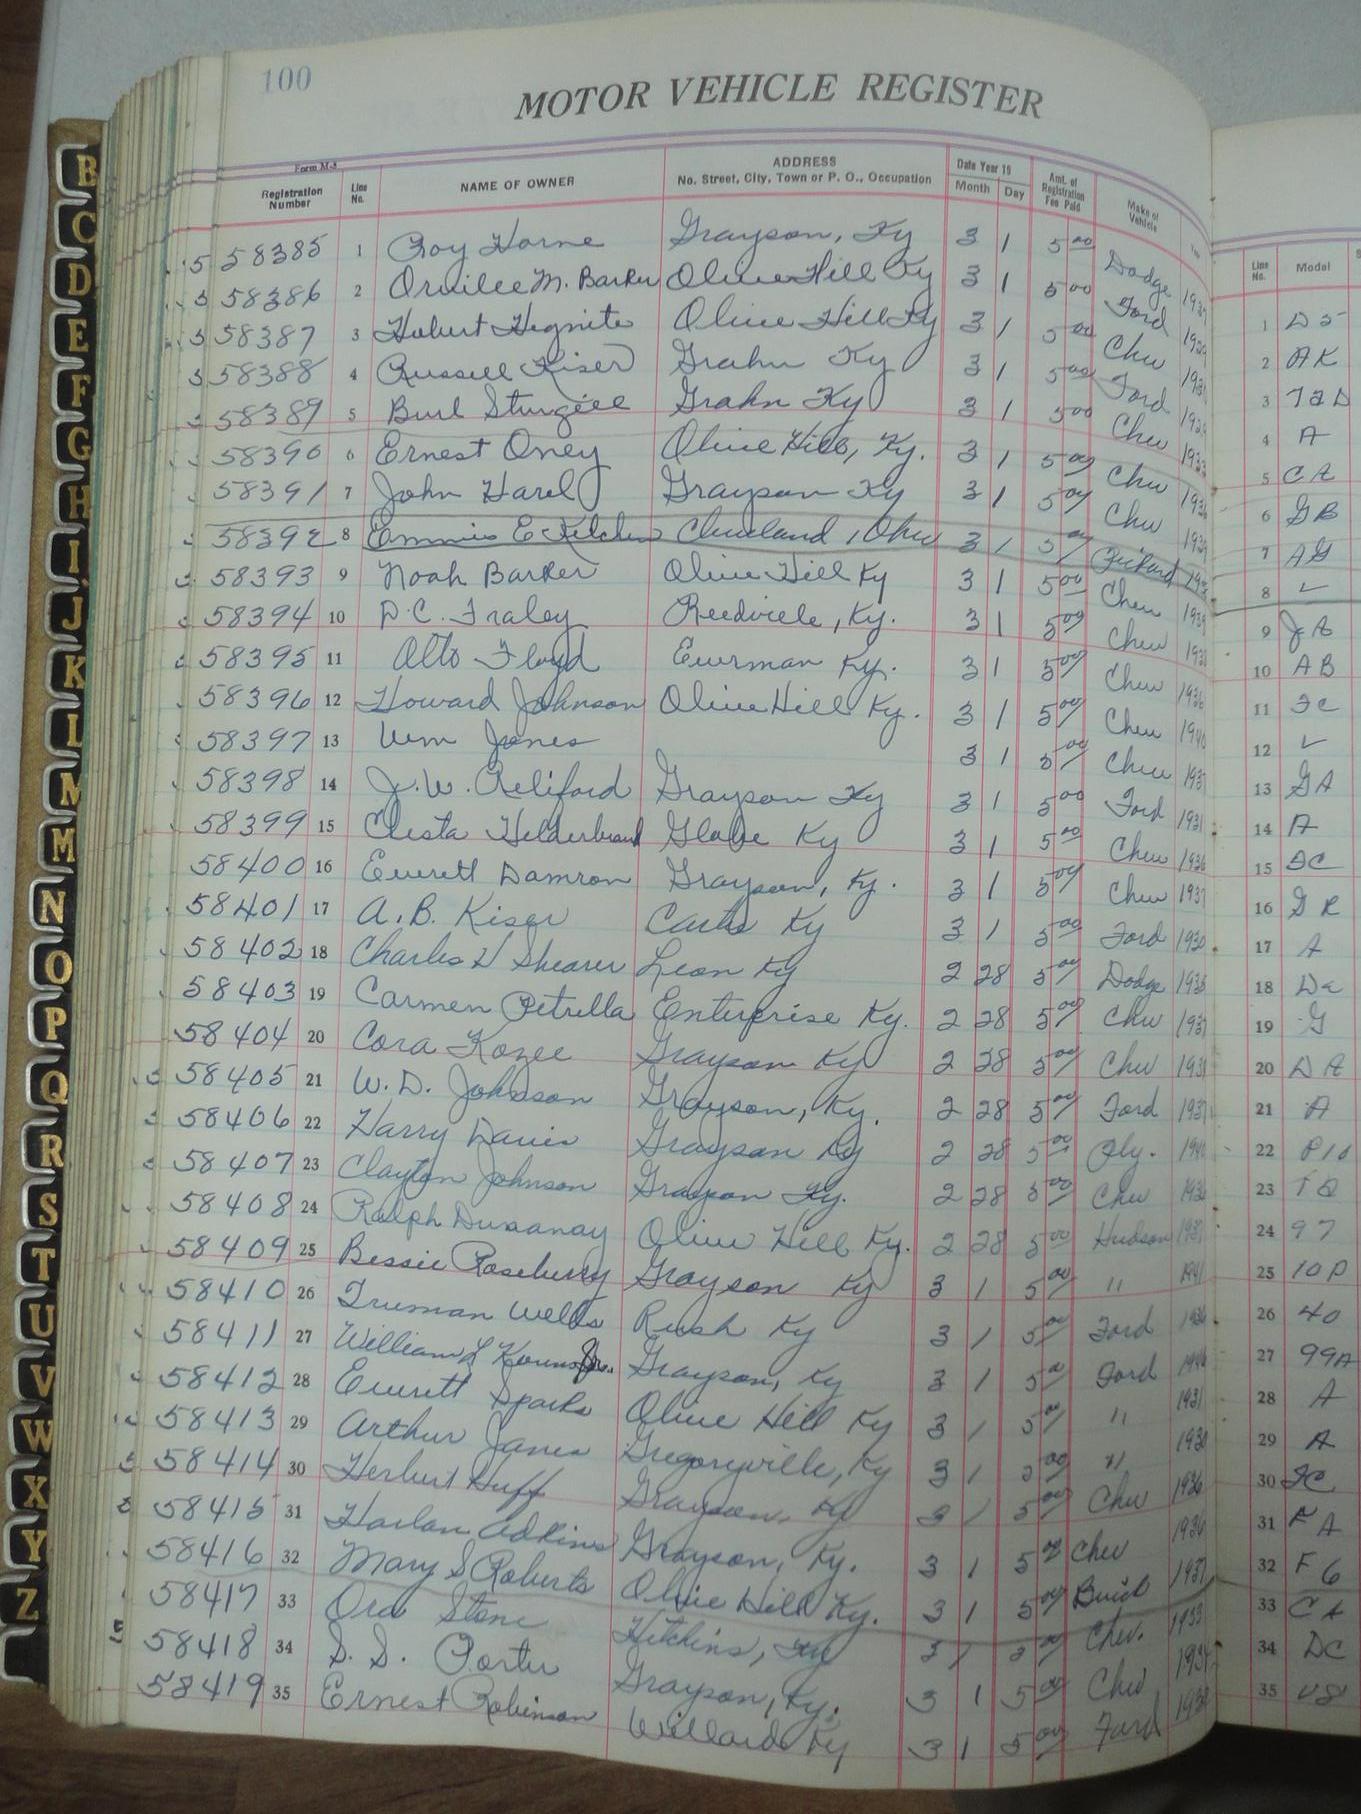 100
MOTOR VEHICLE REGISTER
Form M-5
Registration Number Line No. NAME OF OWNER ADDRESS No. Street, City, Town or P. O., Occupation Date Year 19 Month Day Amt. of Registration Fee Paid Make of Vehicle Line No. Model
58385 1 Roy Horne Grayson, Ky 3 1 5 00 Dodge
58386 2 Orville M. Barker Olive Hill Ky 3 1 5 00 Ford
58387 3 Hubert Hignite Olive Hill Ky 3 1 5 00 Chev
58388 4 Russell Kiser Grahn Ky 3 1 5 00 Ford
58389 5 Burl Sturgill Grahn Ky 3 1 5 00 Chev 1933
58390 6 Ernest Oney Olive Hill, Ky. 3 1 5 00 Chev 1936
58391 7 John Harel Grayson Ky 3 1 5 00 Chev 1939
58392 8 Emmis E Kitchen Cleveland, Ohio 3 1 5 00
58393 9 Noah Barker Olive Hill Ky 3 1 5 00 Chev
58394 10 D.C. Fraley Reedville, Ky. 3 1 5 00 Chev
58395 11 Alto Floyd Ky. 3 1 5 00 Chev 1936
58396 12 Howard Johnson Olive Hill Ky. 3 1 5 00 Chev 1940
58397 13 Wm Jones 3 1 5 00 Chev 1937
58398 14 J. W. Reliford Grayson Ky 3 1 5 00 Ford 1931
58399 15 Clesta Helderbrand Globe Ky 3 1 5 00 Chev 1936
58400 16 Everett Damron Grayson, Ky. 3 1 5 00 Chev 1937
58401 17 A. B. Kiser Carter Ky 3 1 5 00 Ford 1930
58402 18 Charles H Shearer Leon Ky 2 28 5 00 Dodge 1935
58403 19 Carmen Petrella Enterprise Ky. 2 28 5 00 Chev 1937
58404 20 Cora Kozee Grayson Ky 2 28 5 00 Chev
58405 21 W. D. Johnson Grayson, Ky. 2 28 5 00 Ford
58406 22 Harry Davis Grayson Ky 2 28 5 00 Ply. 1940
58407 23 Clayton Johnson Grayson Ky. 2 28 5 00 Chev
58408 24 Ralph Dusanay Olive Hill Ky. 2 28 5 00 Hudson
58409 25 Bessie Roseberry Grayson Ky 3 1 5 00 " 1941
58410 26 Truman Wells Rush Ky 3 1 5 00 Ford
58411 27 William L Kouns Jr. Grayson, Ky 3 1 5 00 Ford
58412 28 Everett Sparks Olive Hill Ky 3 1 5 00 " 1931
58413 29 Arthur James Gregoryville, Ky 3 1 5 00 " 1930
58414 30 Herbert Huff Grayson, Ky 3 1 5 00 Chev 1936
58415 31 Harlan Adkins Grayson, Ky. 3 1 5 00 Chev 1936
58416 32 Mary S Roberts Olive Hill Ky. 3 1 5 00 Buick 1937
58417 33 Ora Stone Hitchins, Ky 3 1 5 00 Chev. 1933
58418 34 S. S. Porter Grayson, Ky. 3 1 5 00 Chev
58419 35 Ernest Robinson Willard Ky 3 1 5 00 Ford
1 D5
2 AK
3
4 A
5 CA
6 GB
7 AG
8 ✓
9 JA
10 AB
11 FC
12 ✓
13 GA
14 A
15 FC
16 GR
17 A
18
19 G
20 DA
21 A
22 P10
23
24 97
25 10P
26 40
27 99A
28 A
29 A
30 FC
31 FA
32 F6
33 CA
34 DC
35 V8
B
C
D
E
F
G
H
I
J
K
L
M
M
N
O
P
Q
R
S
T
U
V
W
X
Y
Z